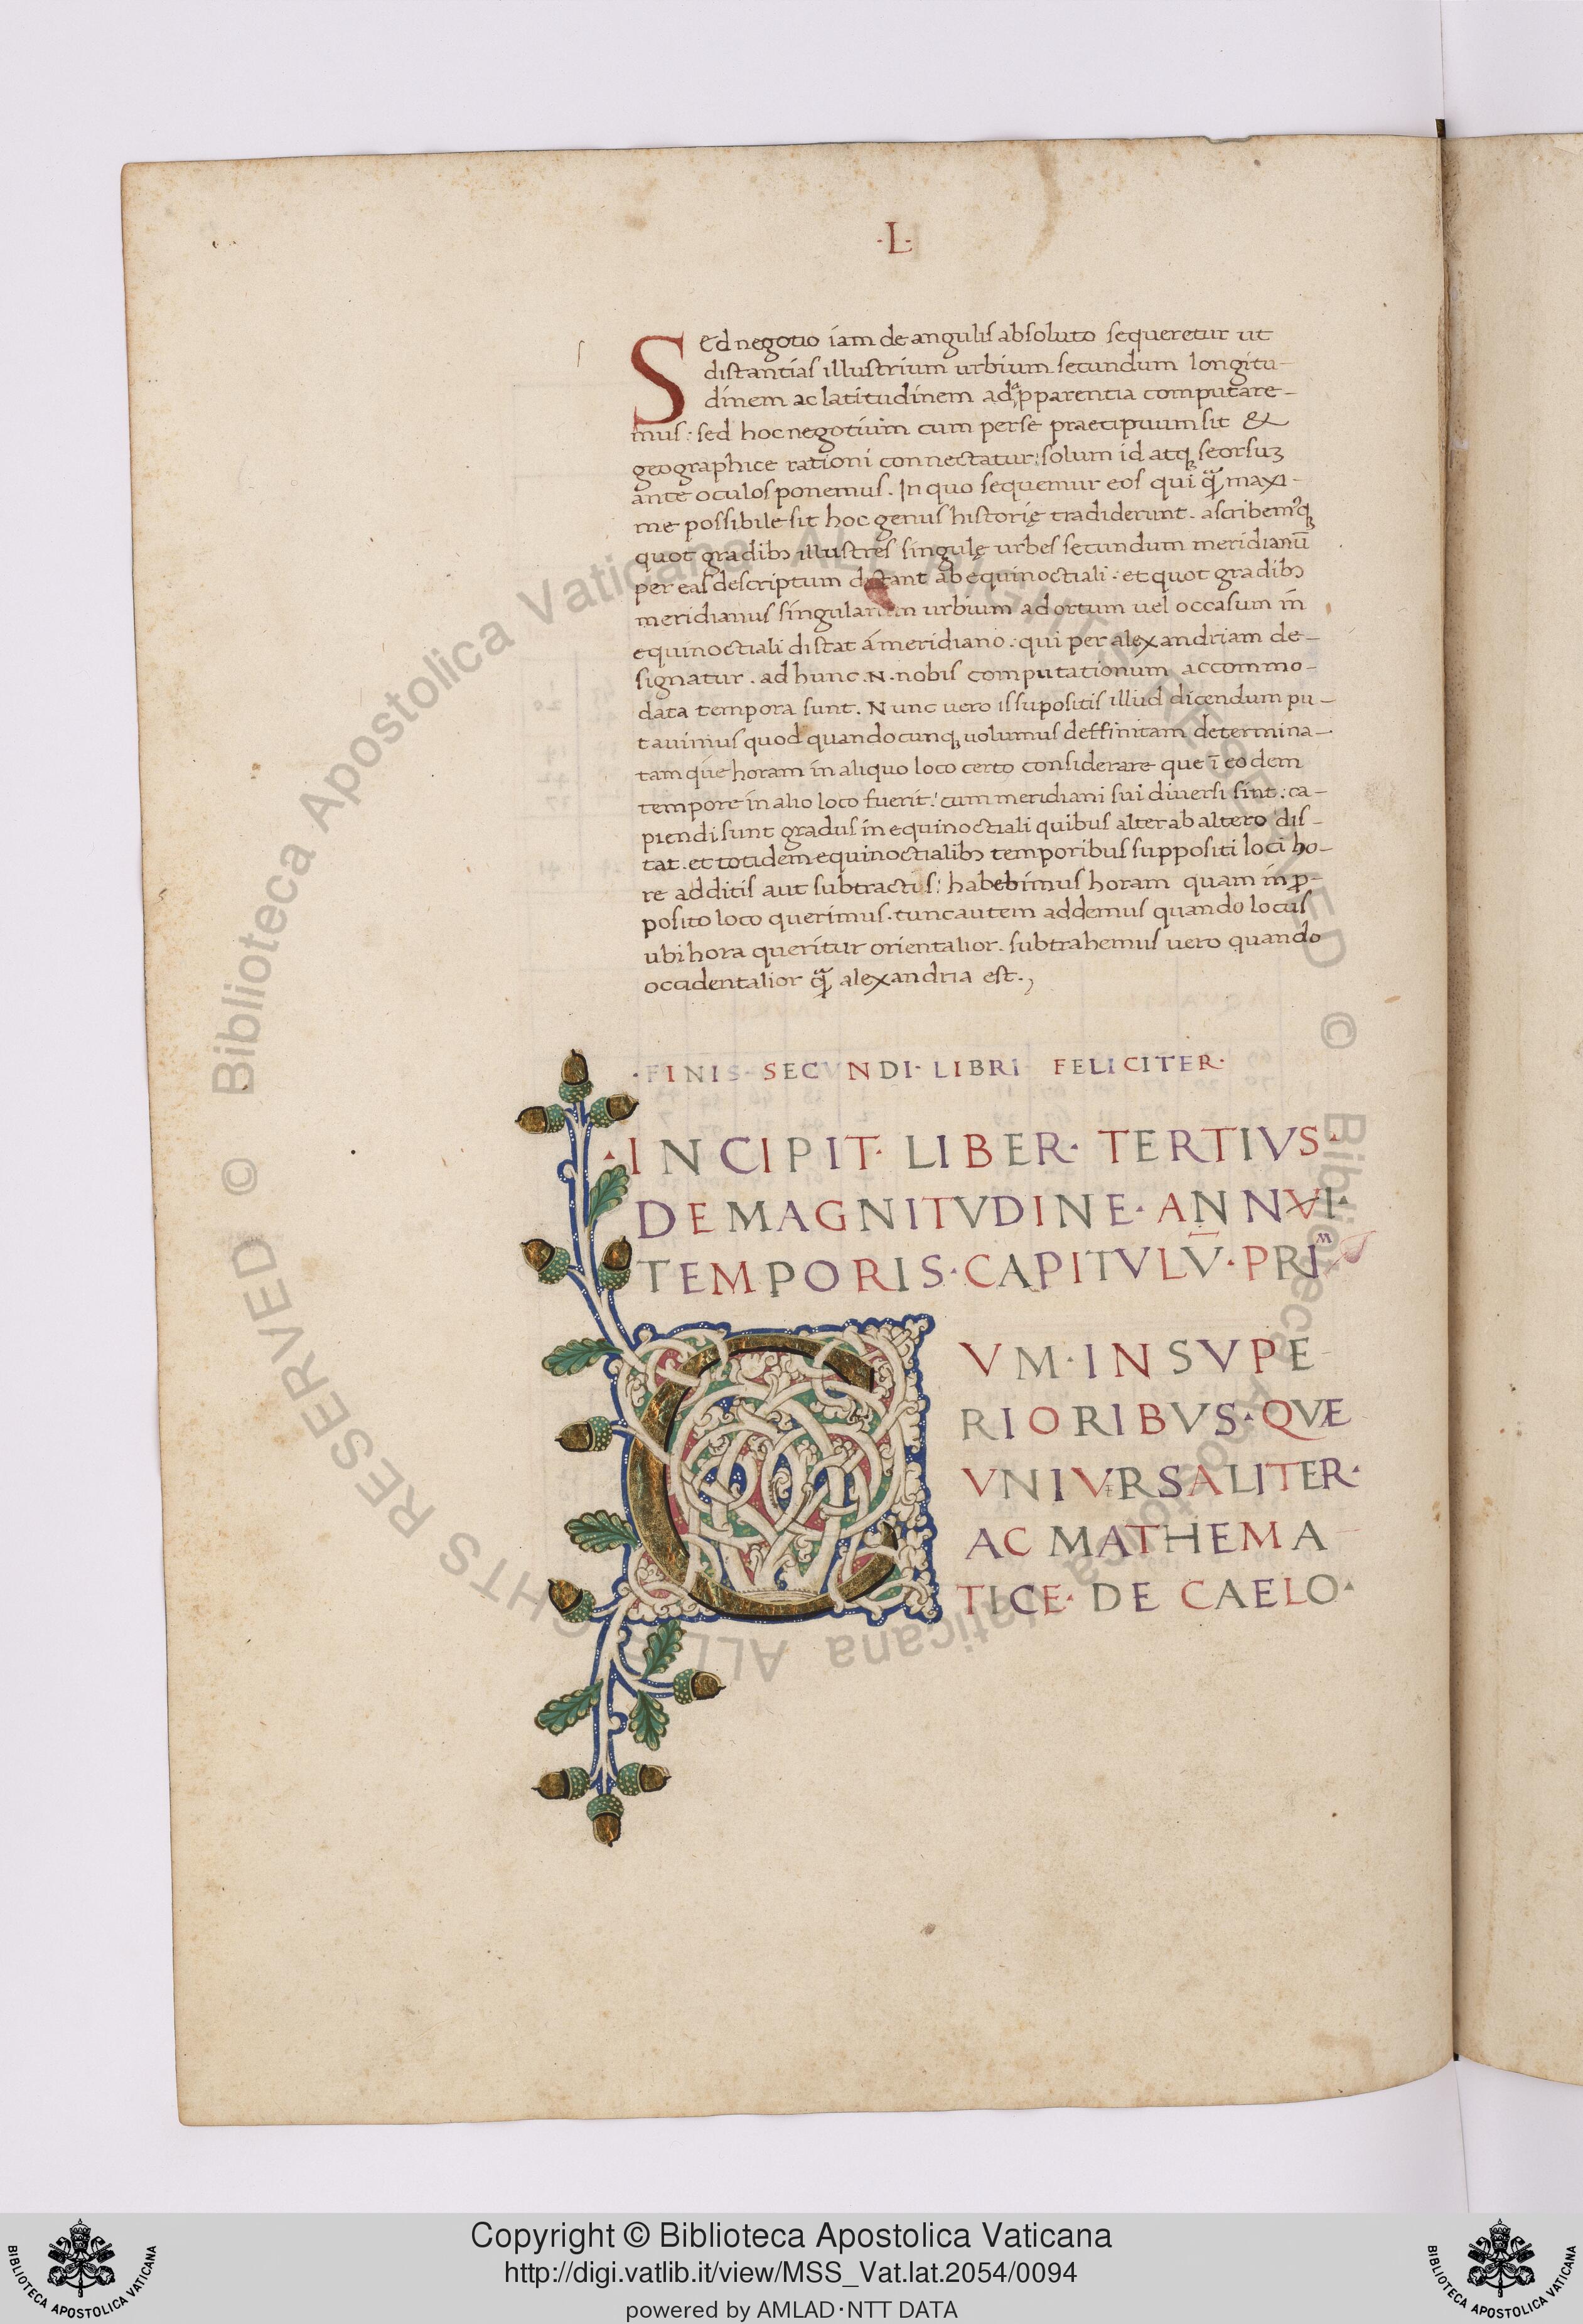 ·L·
Sed negotio iam de angulis absoluto sequeretur ut
distantias illustrium urbium secundum longitu-
dinem ac latitudinem ad apparentia computare-
mus: sed hoc negotium cum per se praecipuum sit &
geographice rationi connectatur: solum id atqꝫ seorsuꝫ
ante oculos ponemus. In quo sequemur eos qui qᷓ maxi-
me possibile sit hoc genus historię tradiderunt. ascribemꝰqꝫ
quot gradibꝫ illustres singulę urbes secundum meridianū
per eas descriptum distant ab ęquinoctiali: et quot gradibꝫ
meridianus singularum urbium ad ortum uel occasum in
equinoctiali distat á meridiano: qui per alexandriam de-
signatur. ad hunc .N. nobis computationum accommo-
data tempora sunt. Nunc uero is supositis illud dicendum pu-
tauimus quod quandocunqꝫ uolumus deffinitam determina-
tamque horam in aliquo loco certo considerare que ī eodem
tempore in alio loco fuerit: cum meridiani sui diuersi sint: ca-
piendi sunt gradus in equinoctiali quibus alter ab altero dis-
tat. et totidem equinoctialibꝫ temporibus suppositi loci ho-
re additis aut subtractis: habebimus horam quam in ꝓ-
posito loco querimus. tunc autem addemus quando locus
ubi hora queritur orientalior. subtrahemus uero quando
occidentalior qᷓ alexandria est.,
·FINIS· SECVNDI· LIBRI FELICITER·
·INCIPIT· LIBER· TERTIVS·
DE MAGNITVDINE· ANNVI·
TEMPORIS· CAPITVLV̅· PRIᴹ
CVM· IN SVPE
RIORIBVS· QVE
VNIVERSALITER·
AC MATHEMA
TICE· DE CAELO·
© Biblioteca Apostolica Vaticana ALL RIGHTS RESERVED
© Biblioteca Apostolica Vaticana ALL RIGHTS RESERVED
Copyright © Biblioteca Apostolica Vaticana
http://digi.vatlib.it/view/MSS_Vat.lat.2054/0094
powered by AMLAD·NTT DATA
BIBLIOTECA APOSTOLICA VATICANA
BIBLIOTECA APOSTOLICA VATICANA